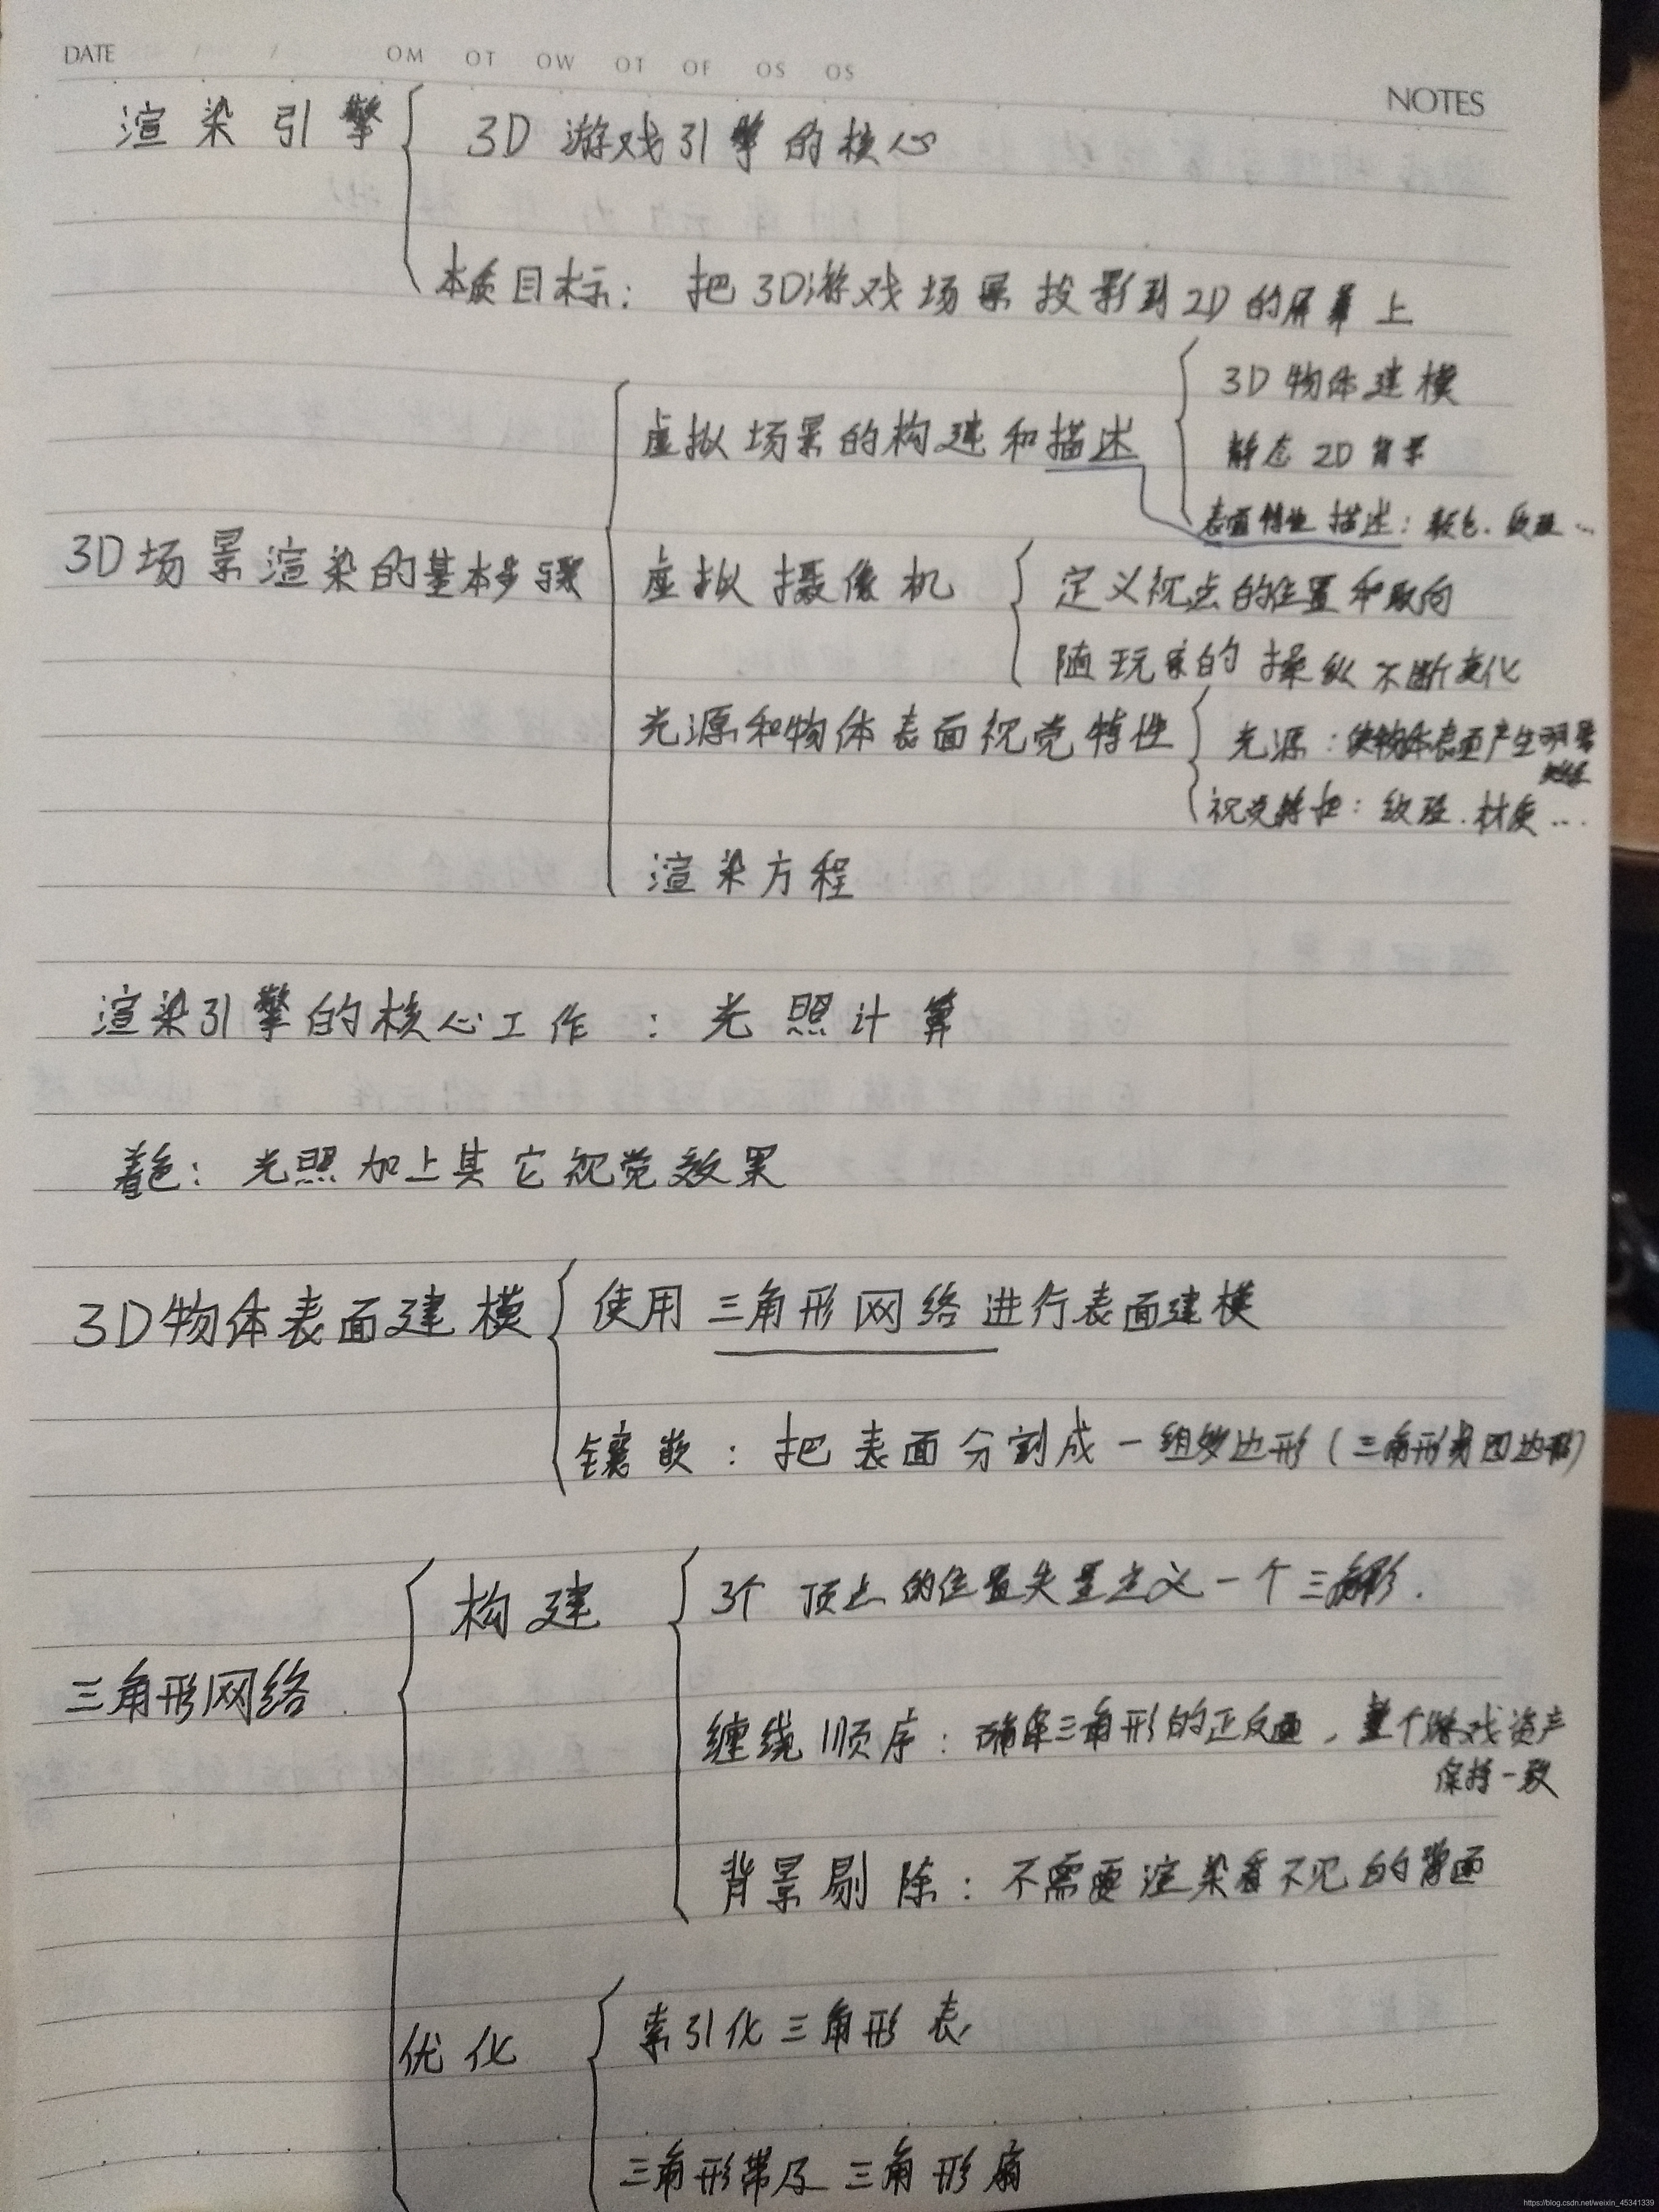 DATE / / OM OT OW OT OF OS OS
NOTES
渲染引擎
3D 游戏引擎的核心
本质目标： 把3D游戏场景投影到2D的屏幕上
3D场景渲染的基本步骤
虚拟场景的构建和描述
3D物体建模
静态2D背景
表面特性描述：颜色、纹理…
虚拟摄像机
定义视点的位置和取向
随玩家的操纵不断变化
光源和物体表面视觉特性
光源：使物体表面产生明暗
视觉特性：纹理、材质…
渲染方程
渲染引擎的核心工作：光照计算
着色：光照加上其它视觉效果
3D物体表面建模
使用三角形网络进行表面建模
镶嵌：把表面分割成一组多边形（三角形或四边形）
三角形网络
构建
3个顶点的位置矢量定义一个三角形.
缠绕顺序：确定三角形的正反面，整个游戏资产
保持一致
背景剔除：不需要渲染看不见的背面
优化
索引化三角形表
三角形带及三角形扇
https://blog.csdn.net/weixin_45341339